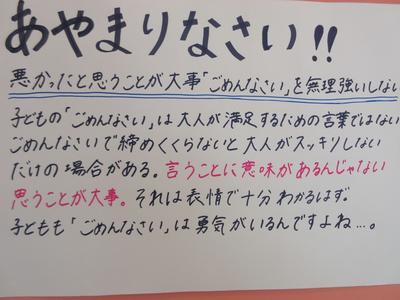 あやまりなさい!!
悪かったと思うことが大事「ごめんなさい」を無理強いしない
子どもの「ごめんなさい」は大人が満足するための言葉ではない
ごめんなさいで締めくくらないと大人がスッキリしない
だけの場合がある。言うことに意味があるんじゃない
思うことが大事。それは表情で十分わかるはず。
子どもも「ごめんなさい」は勇気がいるんですよね…。